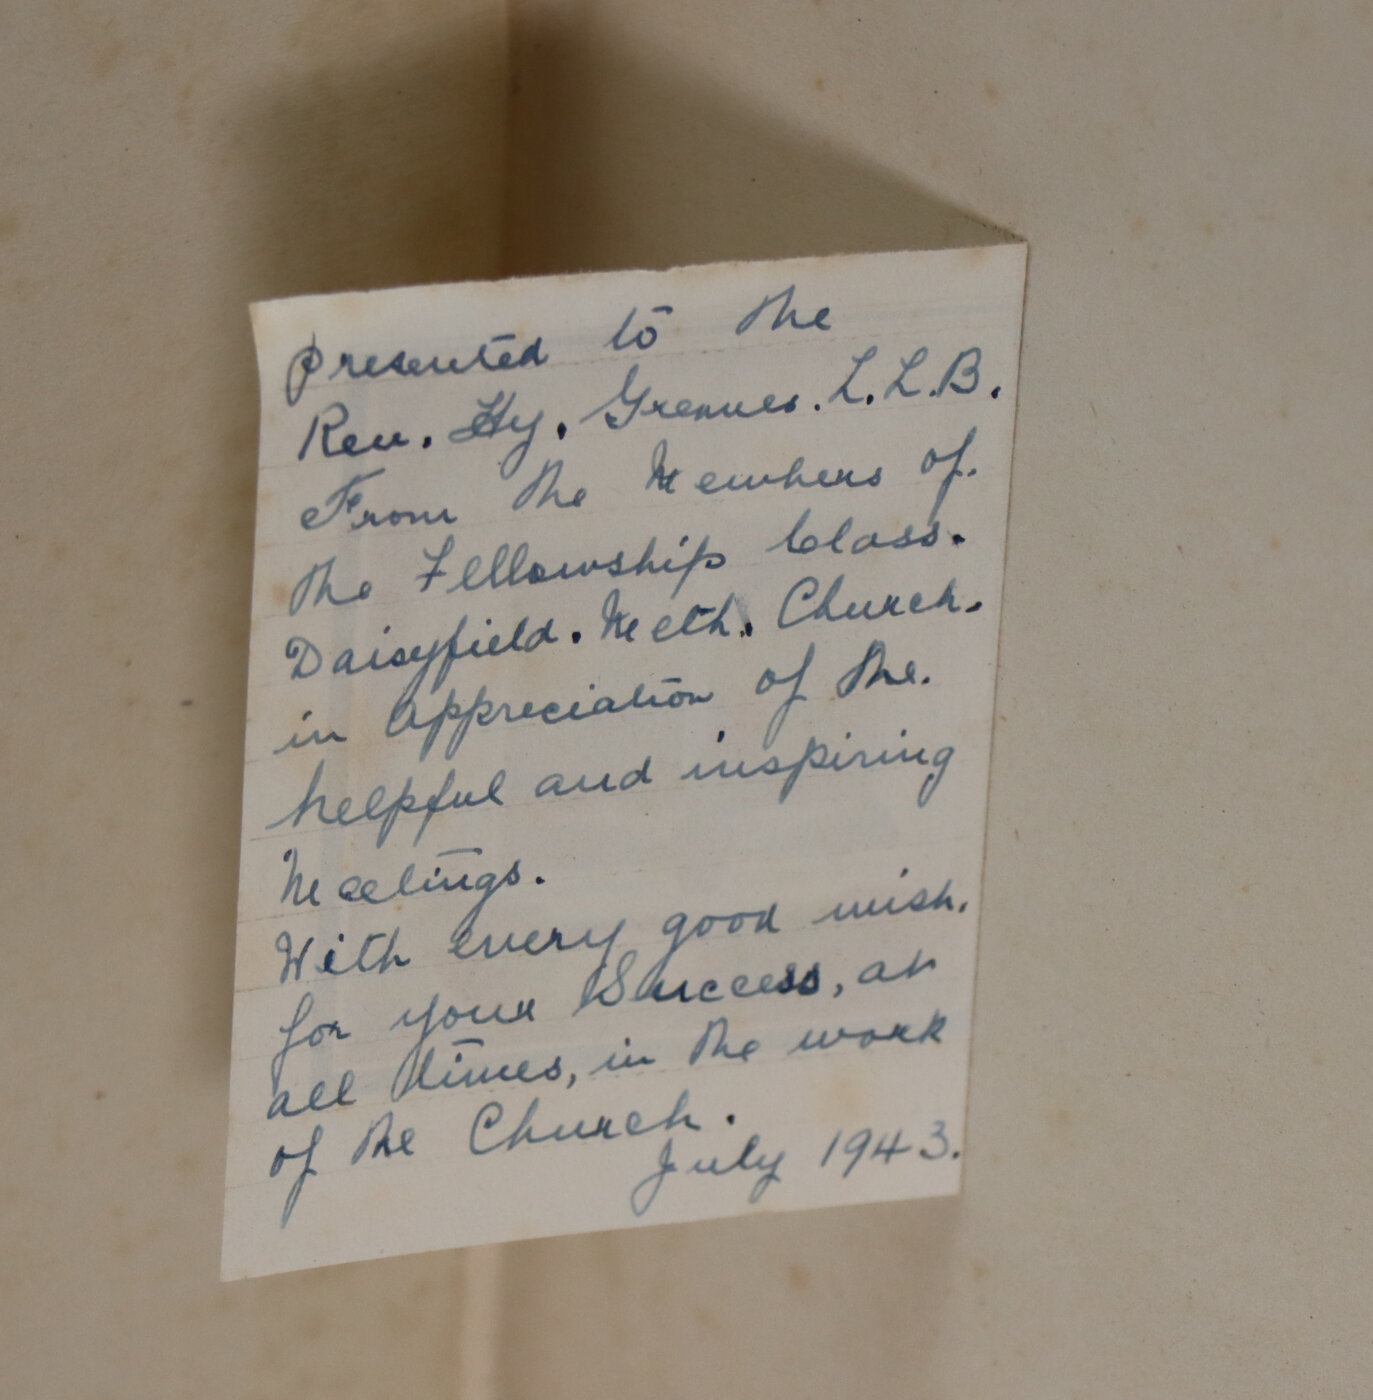 Presented to the
Rev. Hy. Greaves. L.L.B.
From the Members of.
the Fellowship Class.
Daisyfield. Meth. Church.
in appreciation of the.
helpful and inspiring
Meetings.
With every good wish.
for your Success, at
all times, in the work
of the Church.
July 1943.